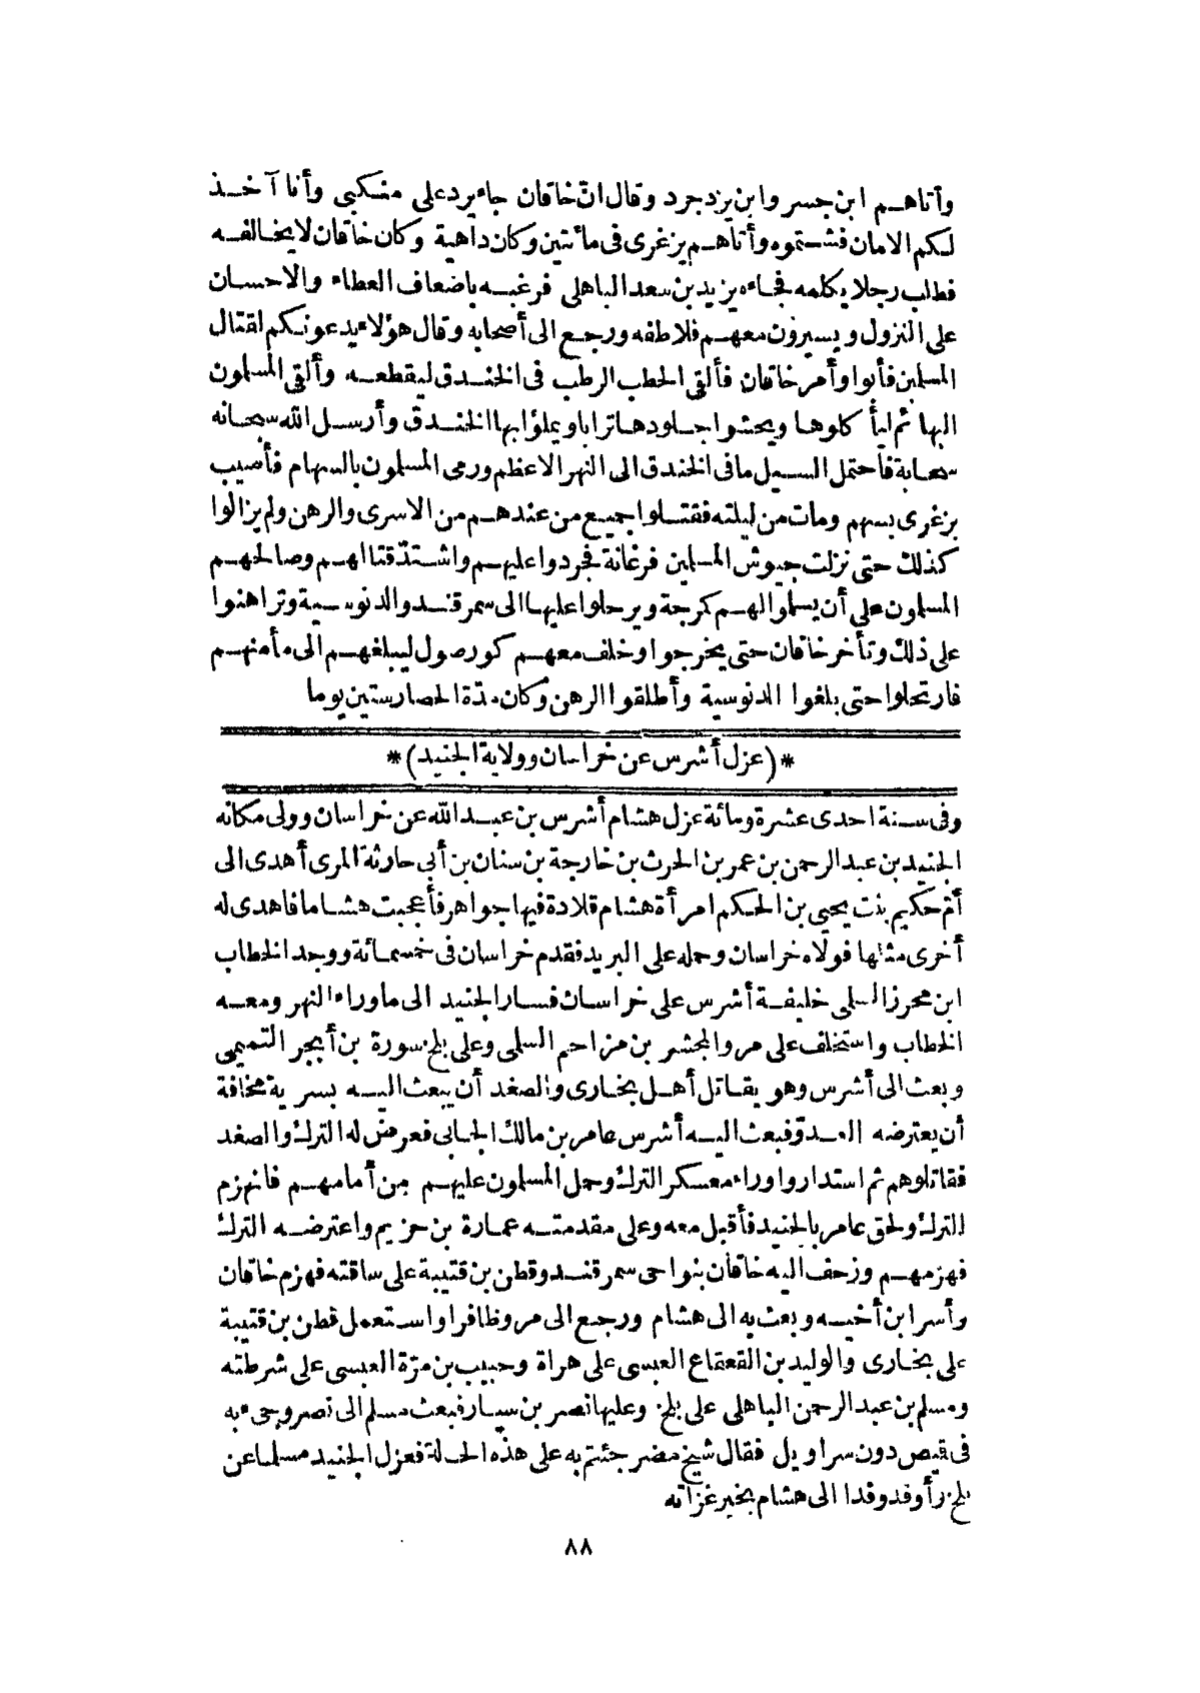 وأتاهم ابن جسر وابن يزدجرد وقال ان خاقان جاء يرد على منكبى وأنا آخذ
لكم الامان فشتموه وأتاهم يزغرى فى مائتين وكان داهية وكان خاقان لا يخالفه
فطلب رجلا يكلمه فجاءه يزيد بن سعد الباهلى فرغبه باضعاف العطاء والاحسان
على النزول ويسيرون معهم فلاطفه ورجع الى أصحابه وقال هؤلاء يدعونكم لقتال
المسلمين فأبوا وأمر خاقان فألقى الحطب الرطب فى الخندق ليقطعه وألقى المسلمون
اليها ثم ليأكلوها ويحشوا جلودها ترابا ويملؤا بها الخندق وأرسل الله سبحانه
سحابة فاحتمل السيل ما فى الخندق الى النهر الاعظم ورمى المسلمون بالسهام فأصيب
يزغرى بسهم ومات من ليلته فقتلوا جميع من عندهم من الاسرى والرهن ولم يزالوا
كذلك حتى نزلت جيوش المسلمين فرغانة فجردوا عليهم واشتدّ قتالهم وصالحهم
المسلمون على أن يسلموا لهم كمرجة ويرحلوا عليها الى سمرقند والدنوسية وتراهنوا
على ذلك وتأخر خاقان حتى يخرجوا وخلف معهم كورصول ليبلغهم الى مأمنهم
فارتحلوا حتى بلغوا الدنوسية وأطلقوا الرهن وكان مدّة الحصار ستين يوما
*(عزل أشرس عن خراسان وولاية الجنيد)*
وفى سنة احدى عشرة ومائة عزل هشام أشرس بن عبد الله عن خراسان وولى مكانه
الجنيد بن عبد الرحمن بن عمر بن الحرث بن خارجة بن سنان بن أبى حارثة المرى أهدى الى
أمّ حكيم بنت يحيى بن الحكم امرأة هشام قلادة فيها جواهر فأعجبت هشاما فاهدى له
أخرى مثلها فولاه خراسان وحمله على البريد فقدم خراسان فى خمسمائة ووجد الخطاب
ابن محرز السلمى خليفة أشرس على خراسان فسار الجنيد الى ما وراء النهر ومعه
الخطاب واستخلف على مرو المجشر بن مزاحم السلمى وعلى بلخ سورة بن أبجر التميمى
وبعث الى أشرس وهو يقاتل أهل بخارى والصغد أن يبعث اليه بسرية مخافة
أن يعترضه العدوّ فبعث اليه أشرس عامر بن مالك الجابى فعرض له الترك والصغد
فقاتلوهم ثم استداروا وراء معسكر الترك وحمل المسلمون عليهم من أمامهم فانهزم
الترك ولحق عامر بالجنيد فأقبل معه وعلى مقدمته عمارة بن حزيم واعترضه الترك
فهزمهم وزحف اليه خاقان بنواحى سمرقند وقطن بن قتيبة على ساقته فهزم خاقان
وأسر ابن أخيه وبعث به الى هشام ورجع الى مرو ظافرا واستعمل قطن بن قتيبة
على بخارى والوليد بن القعقاع العبسى على هراة وحبيب بن مرّة العبسى على شرطته
ومسلم بن عبد الرحمن الباهلى على بلخ وعليها نصر بن سيار فبعث مسلم الى نصر وجىء به
فى قميص دون سراويل فقال شيخ مضر جئتم به على هذه الحالة فعزل الجنيد مسلما عن
بلخ وأوفد وفدا الى هشام بخبر غزاته
٨٨